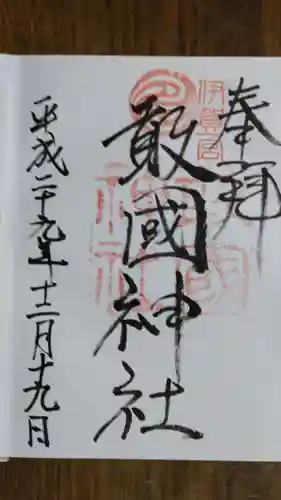 奉拝
伊賀一宮
敢國神社
平成二十九年十二月十九日